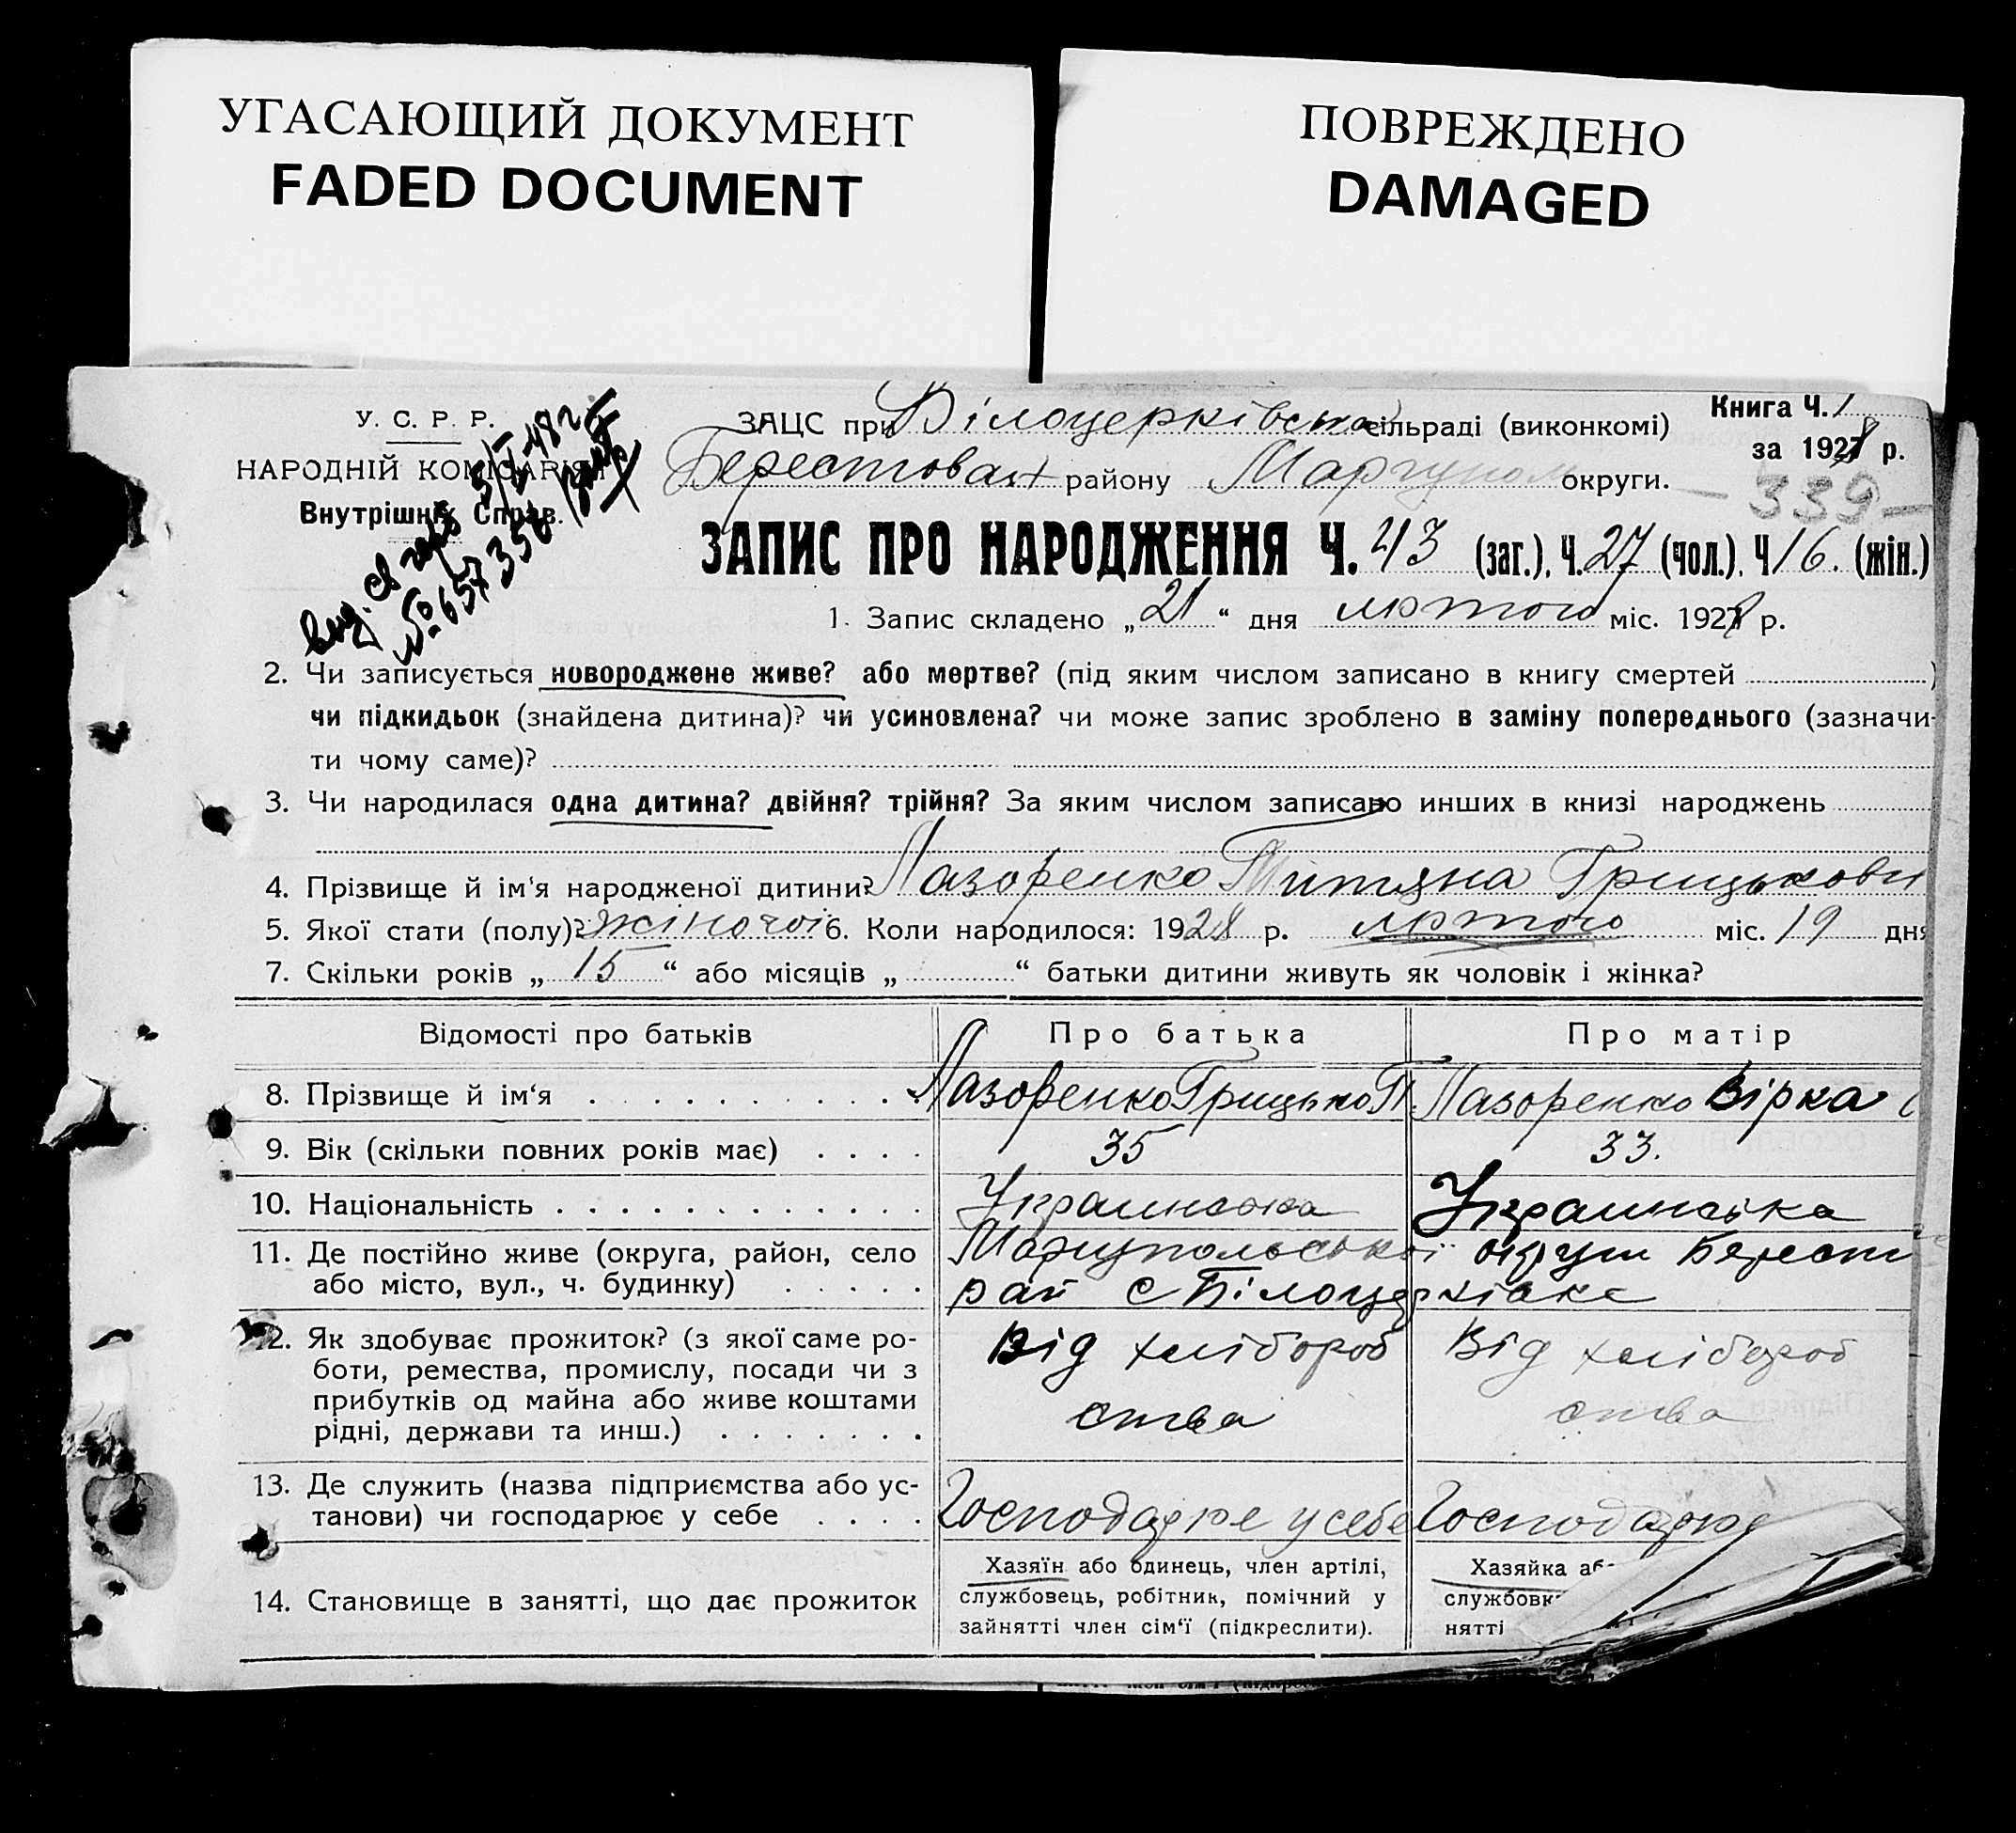 УГАСАЮЩИЙ ДОКУМЕНТ
FADED DOCUMENT
ПОВРЕЖДЕНО
DAMAGED
У. С. Р. Р.
НАРОДНІЙ КОМІСАРІЯТ
Внутрішніх Справ.
№ 657356
ЗАЦС при Білоцерківськ сільраді (виконкомі)
Берестован району Маріупол округи.
Книга Ч. 1
за 1928 р.
— 339 —
ЗАПИС ПРО НАРОДЖЕННЯ Ч. 43 (заг.), Ч. 27 (чол.), Ч 16. (жін.)
1. Запис складено „ 21 “ дня лютого міс. 1928 р.
2. Чи записується новороджене живе? або мертве? (під яким числом записано в книгу смертей )
чи підкидьок (знайдена дитина)? чи усиновлена? чи може запис зроблено в заміну попереднього (зазначи-
ти чому саме)?
3. Чи народилася одна дитина? двійня? трійня? За яким числом записано инших в книзі народжень
4. Прізвище й ім‘я народженої дитини? Лазоренко Титяна Грицькови
5. Якої стати (полу)? жіночої 6. Коли народилося: 1928 р. лютого міс. 19 дня
7. Скільки років „ 15 “ або місяців „ “ батьки дитини живуть як чоловік і жінка?
Відомості про батьків Про батька Про матір
8. Прізвище й ім‘я Лазоренко Грицько П. Лазоренко Вірка
9. Вік (скільки повних років має) 35 33.
10. Національність Украинська Украинська
11. Де постійно живе (округа, район, село Маріупольської округи Берест
або місто, вул., ч. будинку) рай с Білоцерківке
12. Як здобуває прожиток? (з якої саме ро-
боти, ремества, промислу, посади чи з
прибутків од майна або живе коштами
рідні, держави та инш.)
Від хлібороб
ства
Від хлібороб
ства
13. Де служить (назва підприємства або ус-
танови) чи господарює у себе
Господарюе у себе Господарюе
14. Становище в занятті, що дає прожиток
Хазяїн або одинець, член артілі,
службовець, робітник, помічний у
зайнятті член сім‘ї (підкреслити).
Хазяйка
нятті